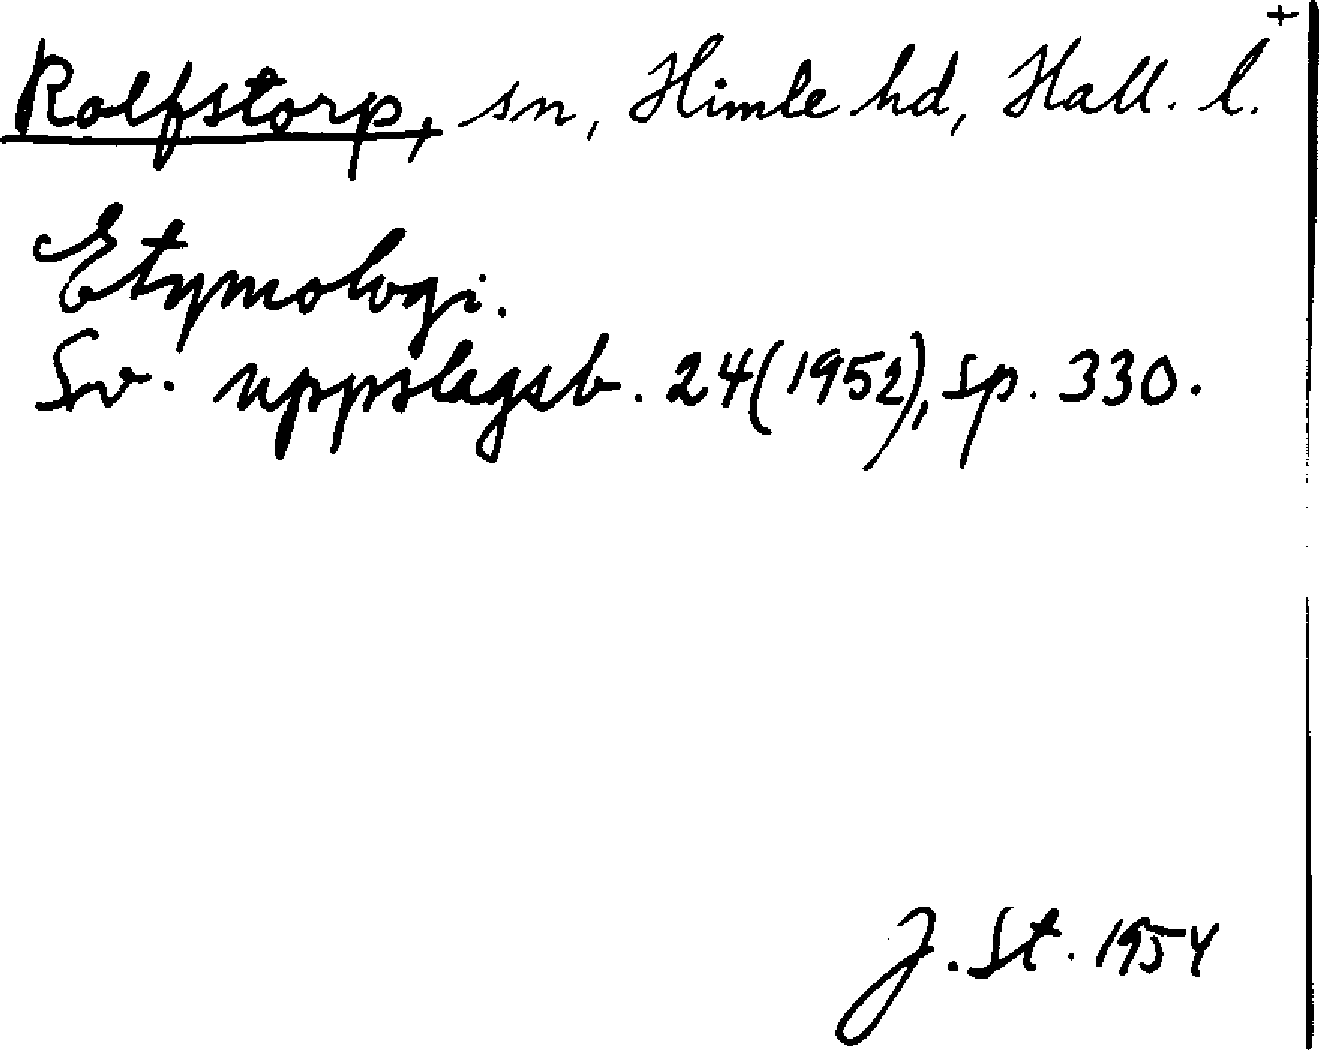 Rolfstorp, sn, Himle hd, Hall. l. +
Etymologi.
Sv. uppslagsb. 24(1952), sp. 330.
J. St. 1954